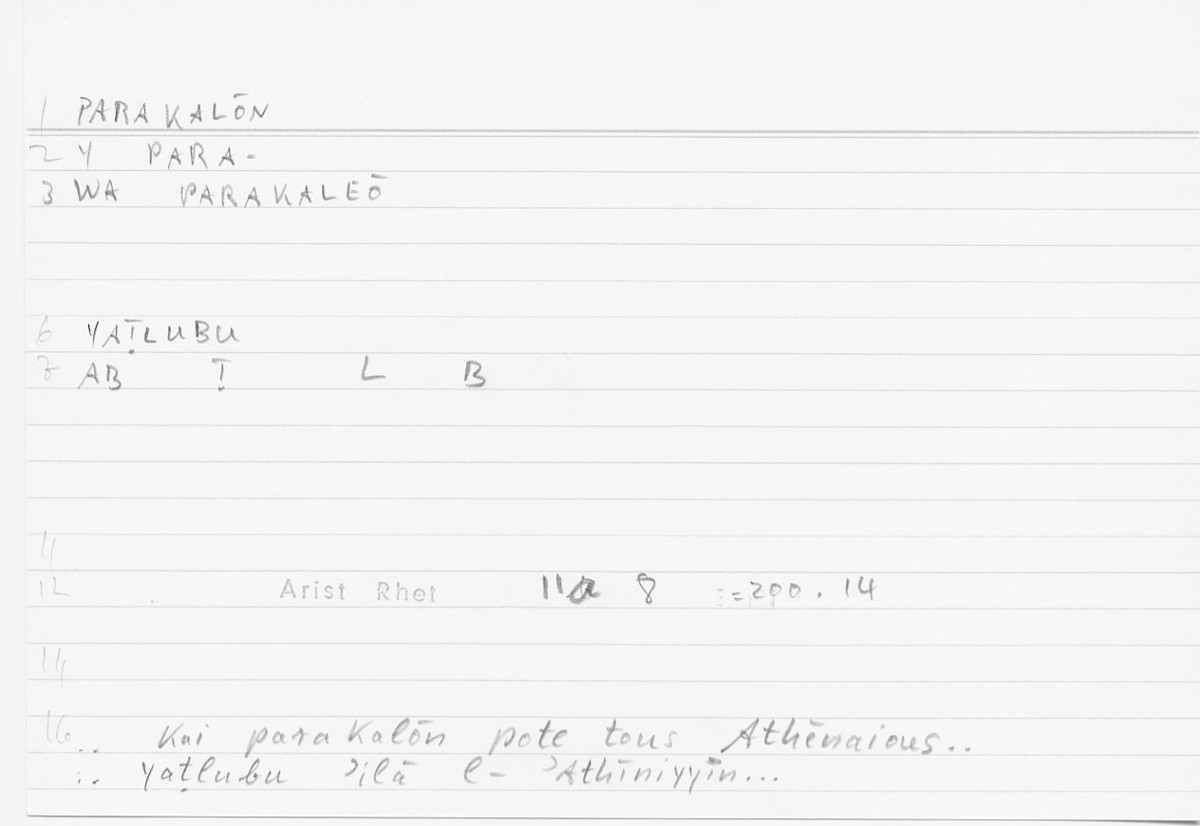 1 PARAKALŌN
2 Y PARA-
3 WA PARAKALEŌ
6 YAṬLUBU
7 AB Ṭ L B
11
12 Arist Rhet 11a 8 :=200.14
14
16.. Kai parakalōn pote tous Athēnaious..
:. yaṭlubu ʾilā l- ʾAthīniyyīn...